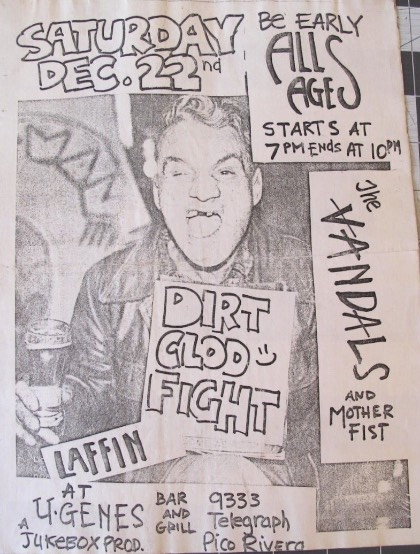 SATURDAY
DEC. 22nd
BE EARLY
ALL
AGES
STARTS AT
7PM ENDS AT 10PM
The
VANDALS
AND
MOTHER
FIST
DIRT
CLOD
FIGHT
LAFFIN
MAN
AT
4·GENES
A JUKEBOX PROD.
BAR
AND
GRILL
9333
Telegraph
Pico Rivera